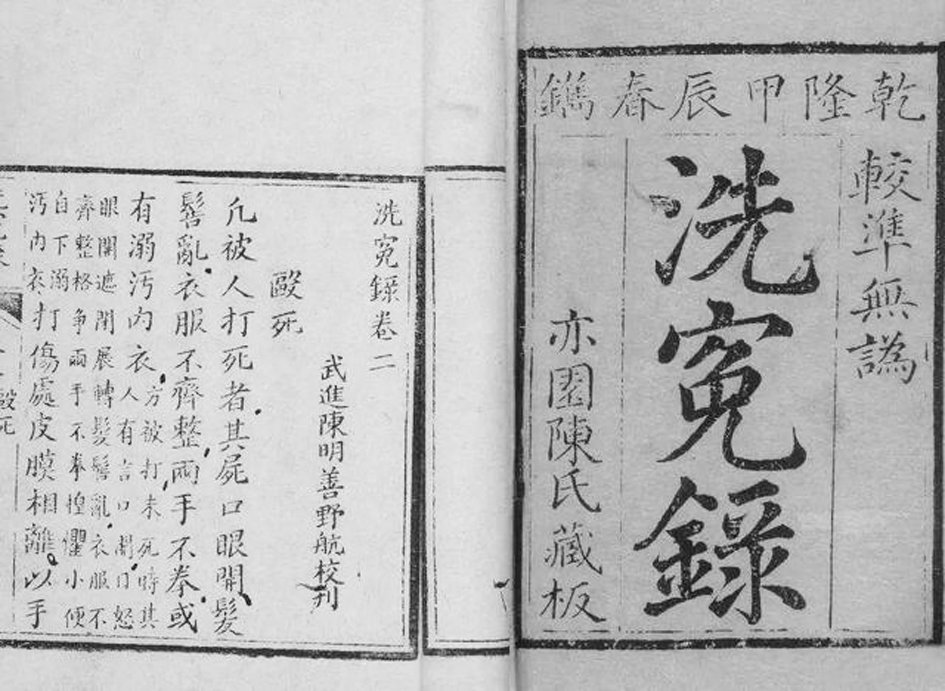 乾隆甲辰春鐫
較準無譌
洗寃錄
亦園陳氏藏板
洗寃錄卷二
武進陳明善野航校刋
毆死
凡被人打死者其屍口眼開髮
髻亂衣服不齊整兩手不拳或
有溺汚內衣
方被打未死時其
人有言口開目怒
眼開遮閉展轉髮髻亂衣服不
齊整格争兩手不拳惶懼小便
自下溺
汚內衣
打傷處皮膜相離以手
毆死